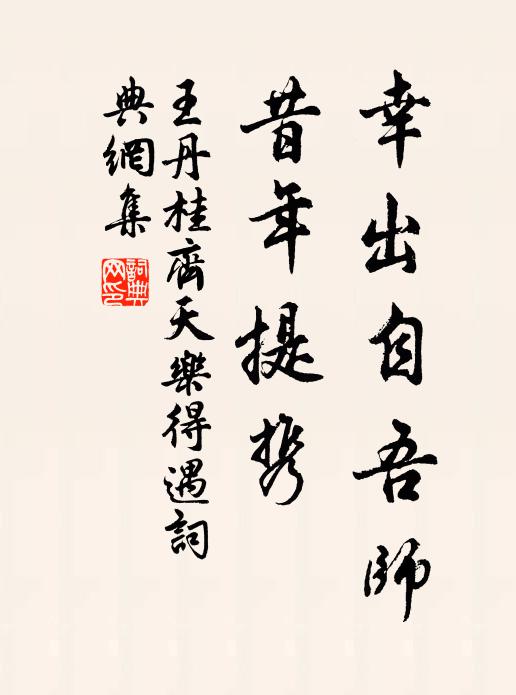 幸出自吾師
昔年提携
王丹桂齊天樂得遇詞
典網集
詞典網印